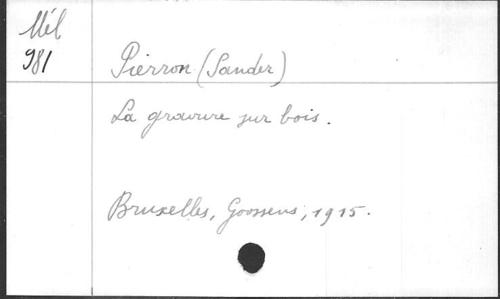 Mél
981
Pierron (Sander)
La gravure sur bois.
Bruxelles, Goossens, 1915.